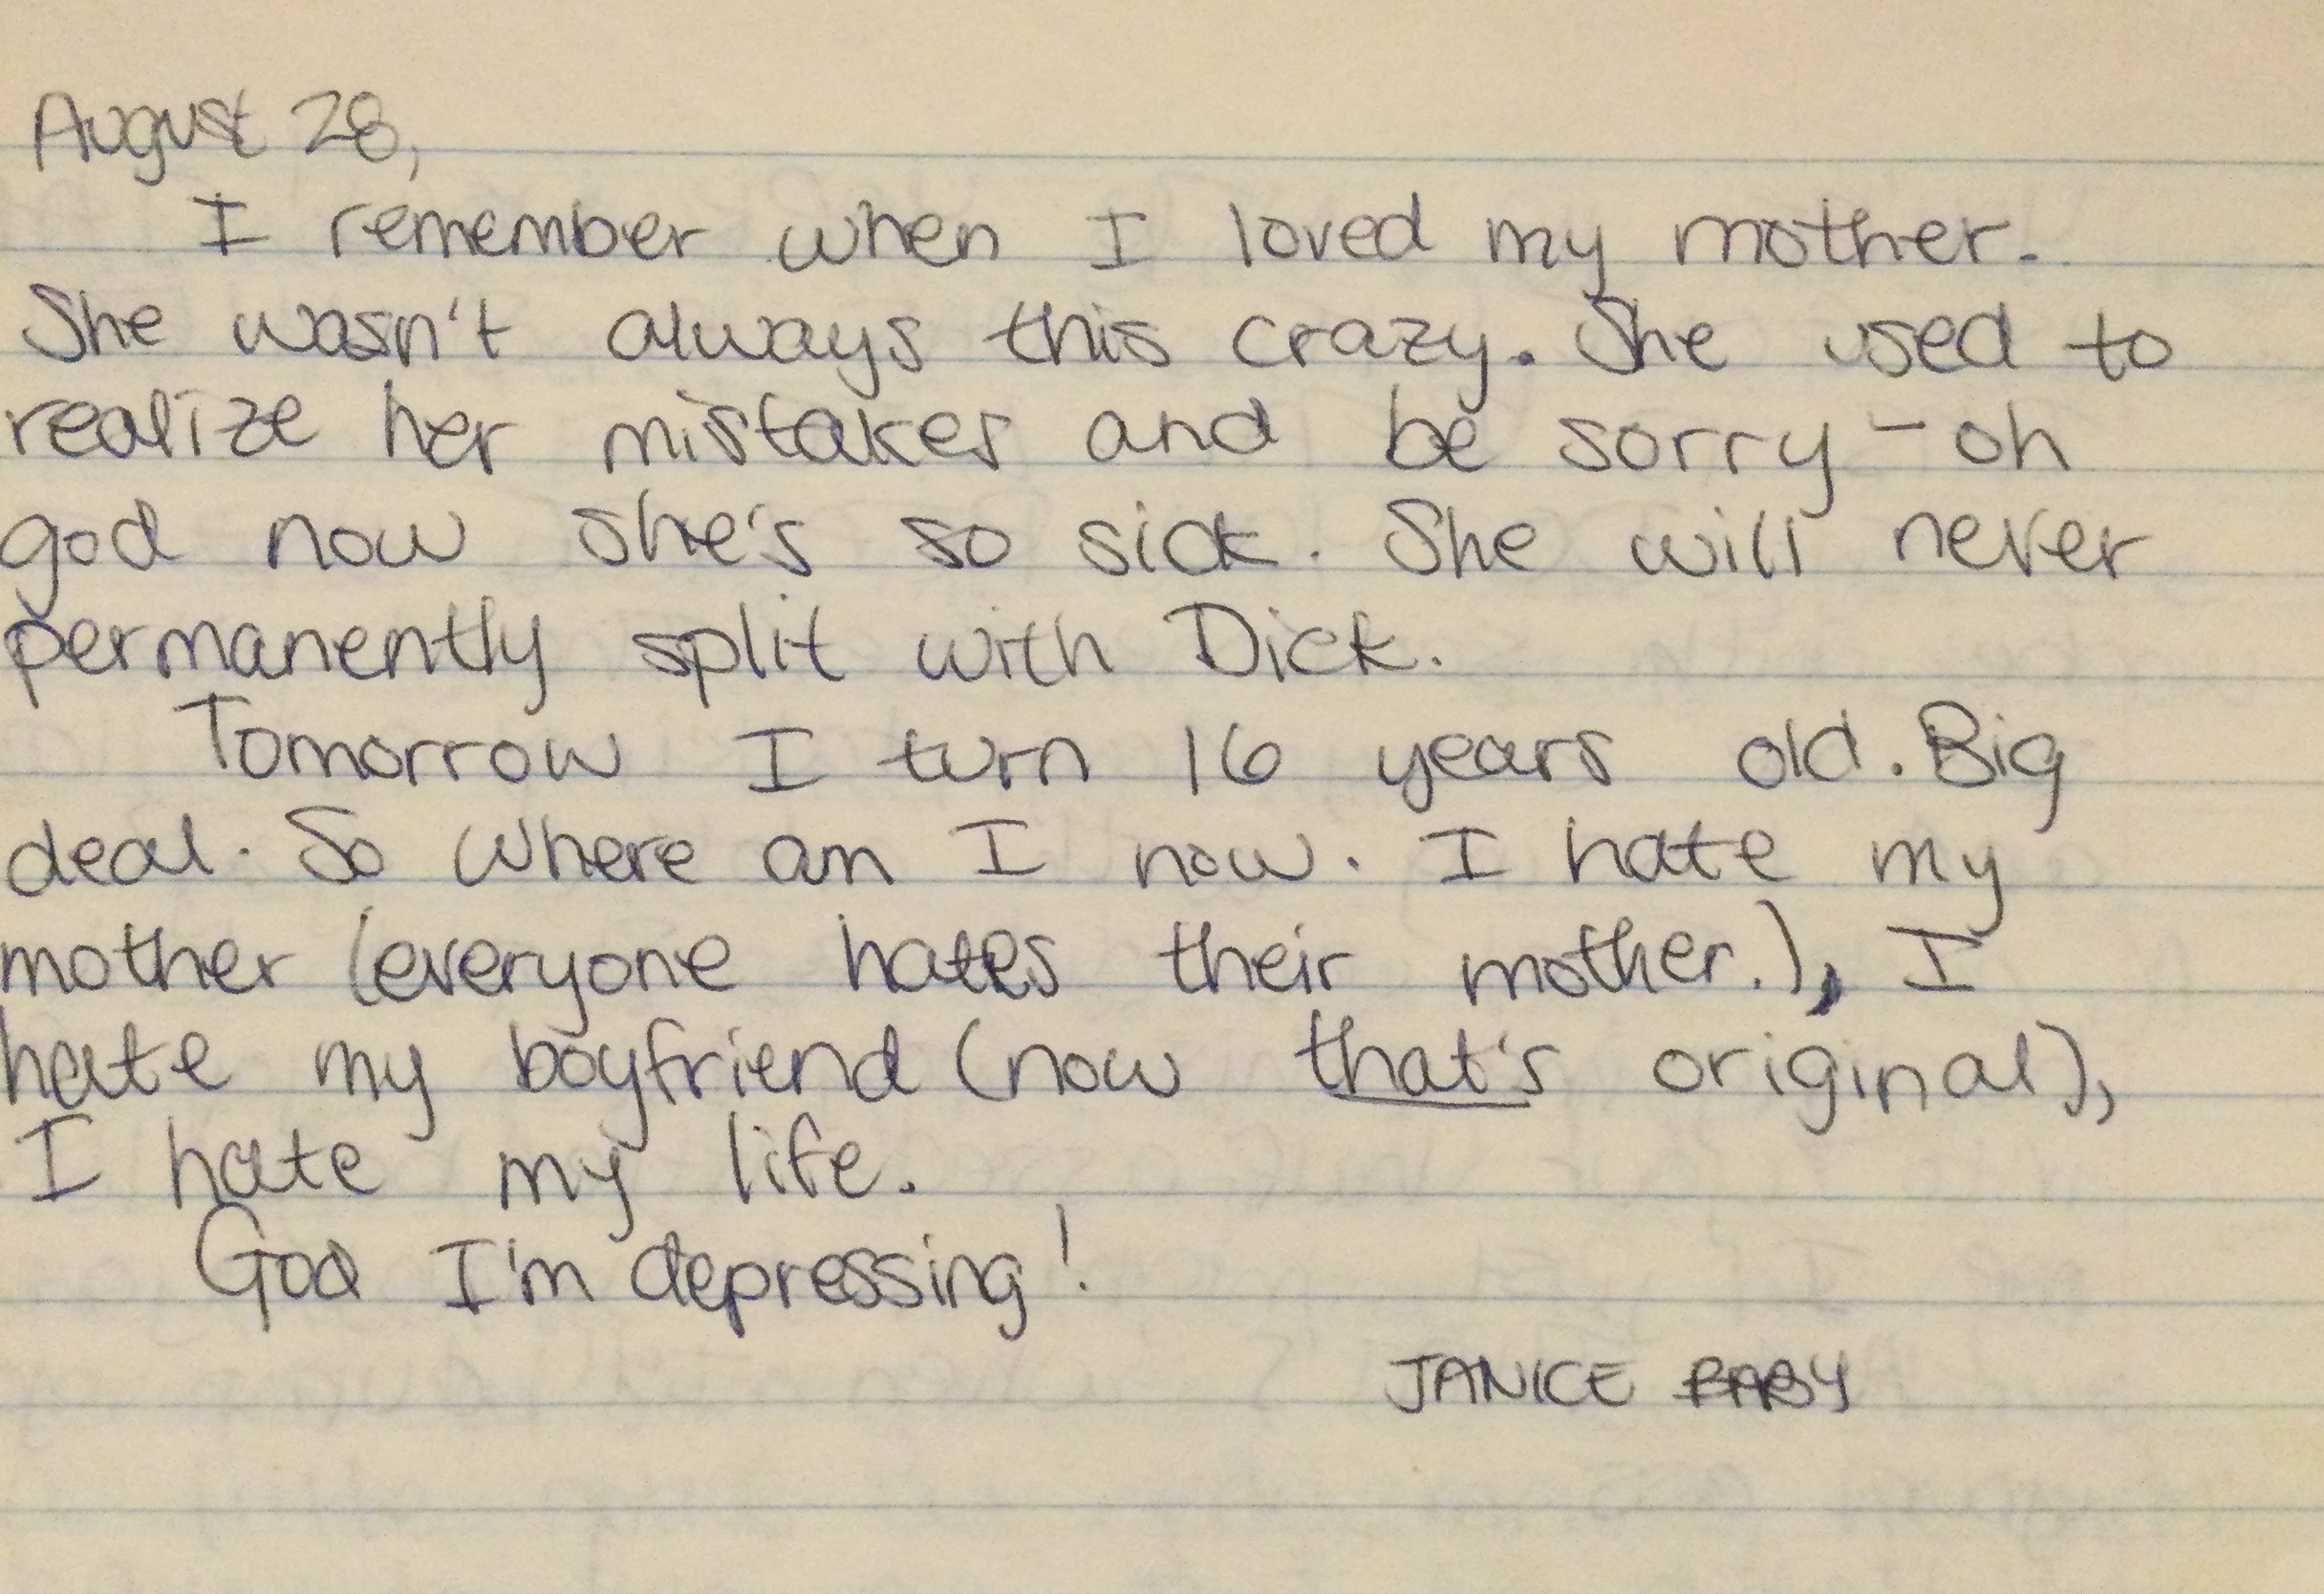 August 28,
I remember when I loved my mother.
She wasn't always this crazy. She used to
realize her mistakes and be sorry - oh
god now she's so sick. She will never
permanently split with Dick.
Tomorrow I turn 16 years old. Big
deal. So where am I now. I hate my
mother (everyone hates their mother.), I
hate my boyfriend (now that's original),
I hate my life.
God I'm depressing!
JANICE BABY